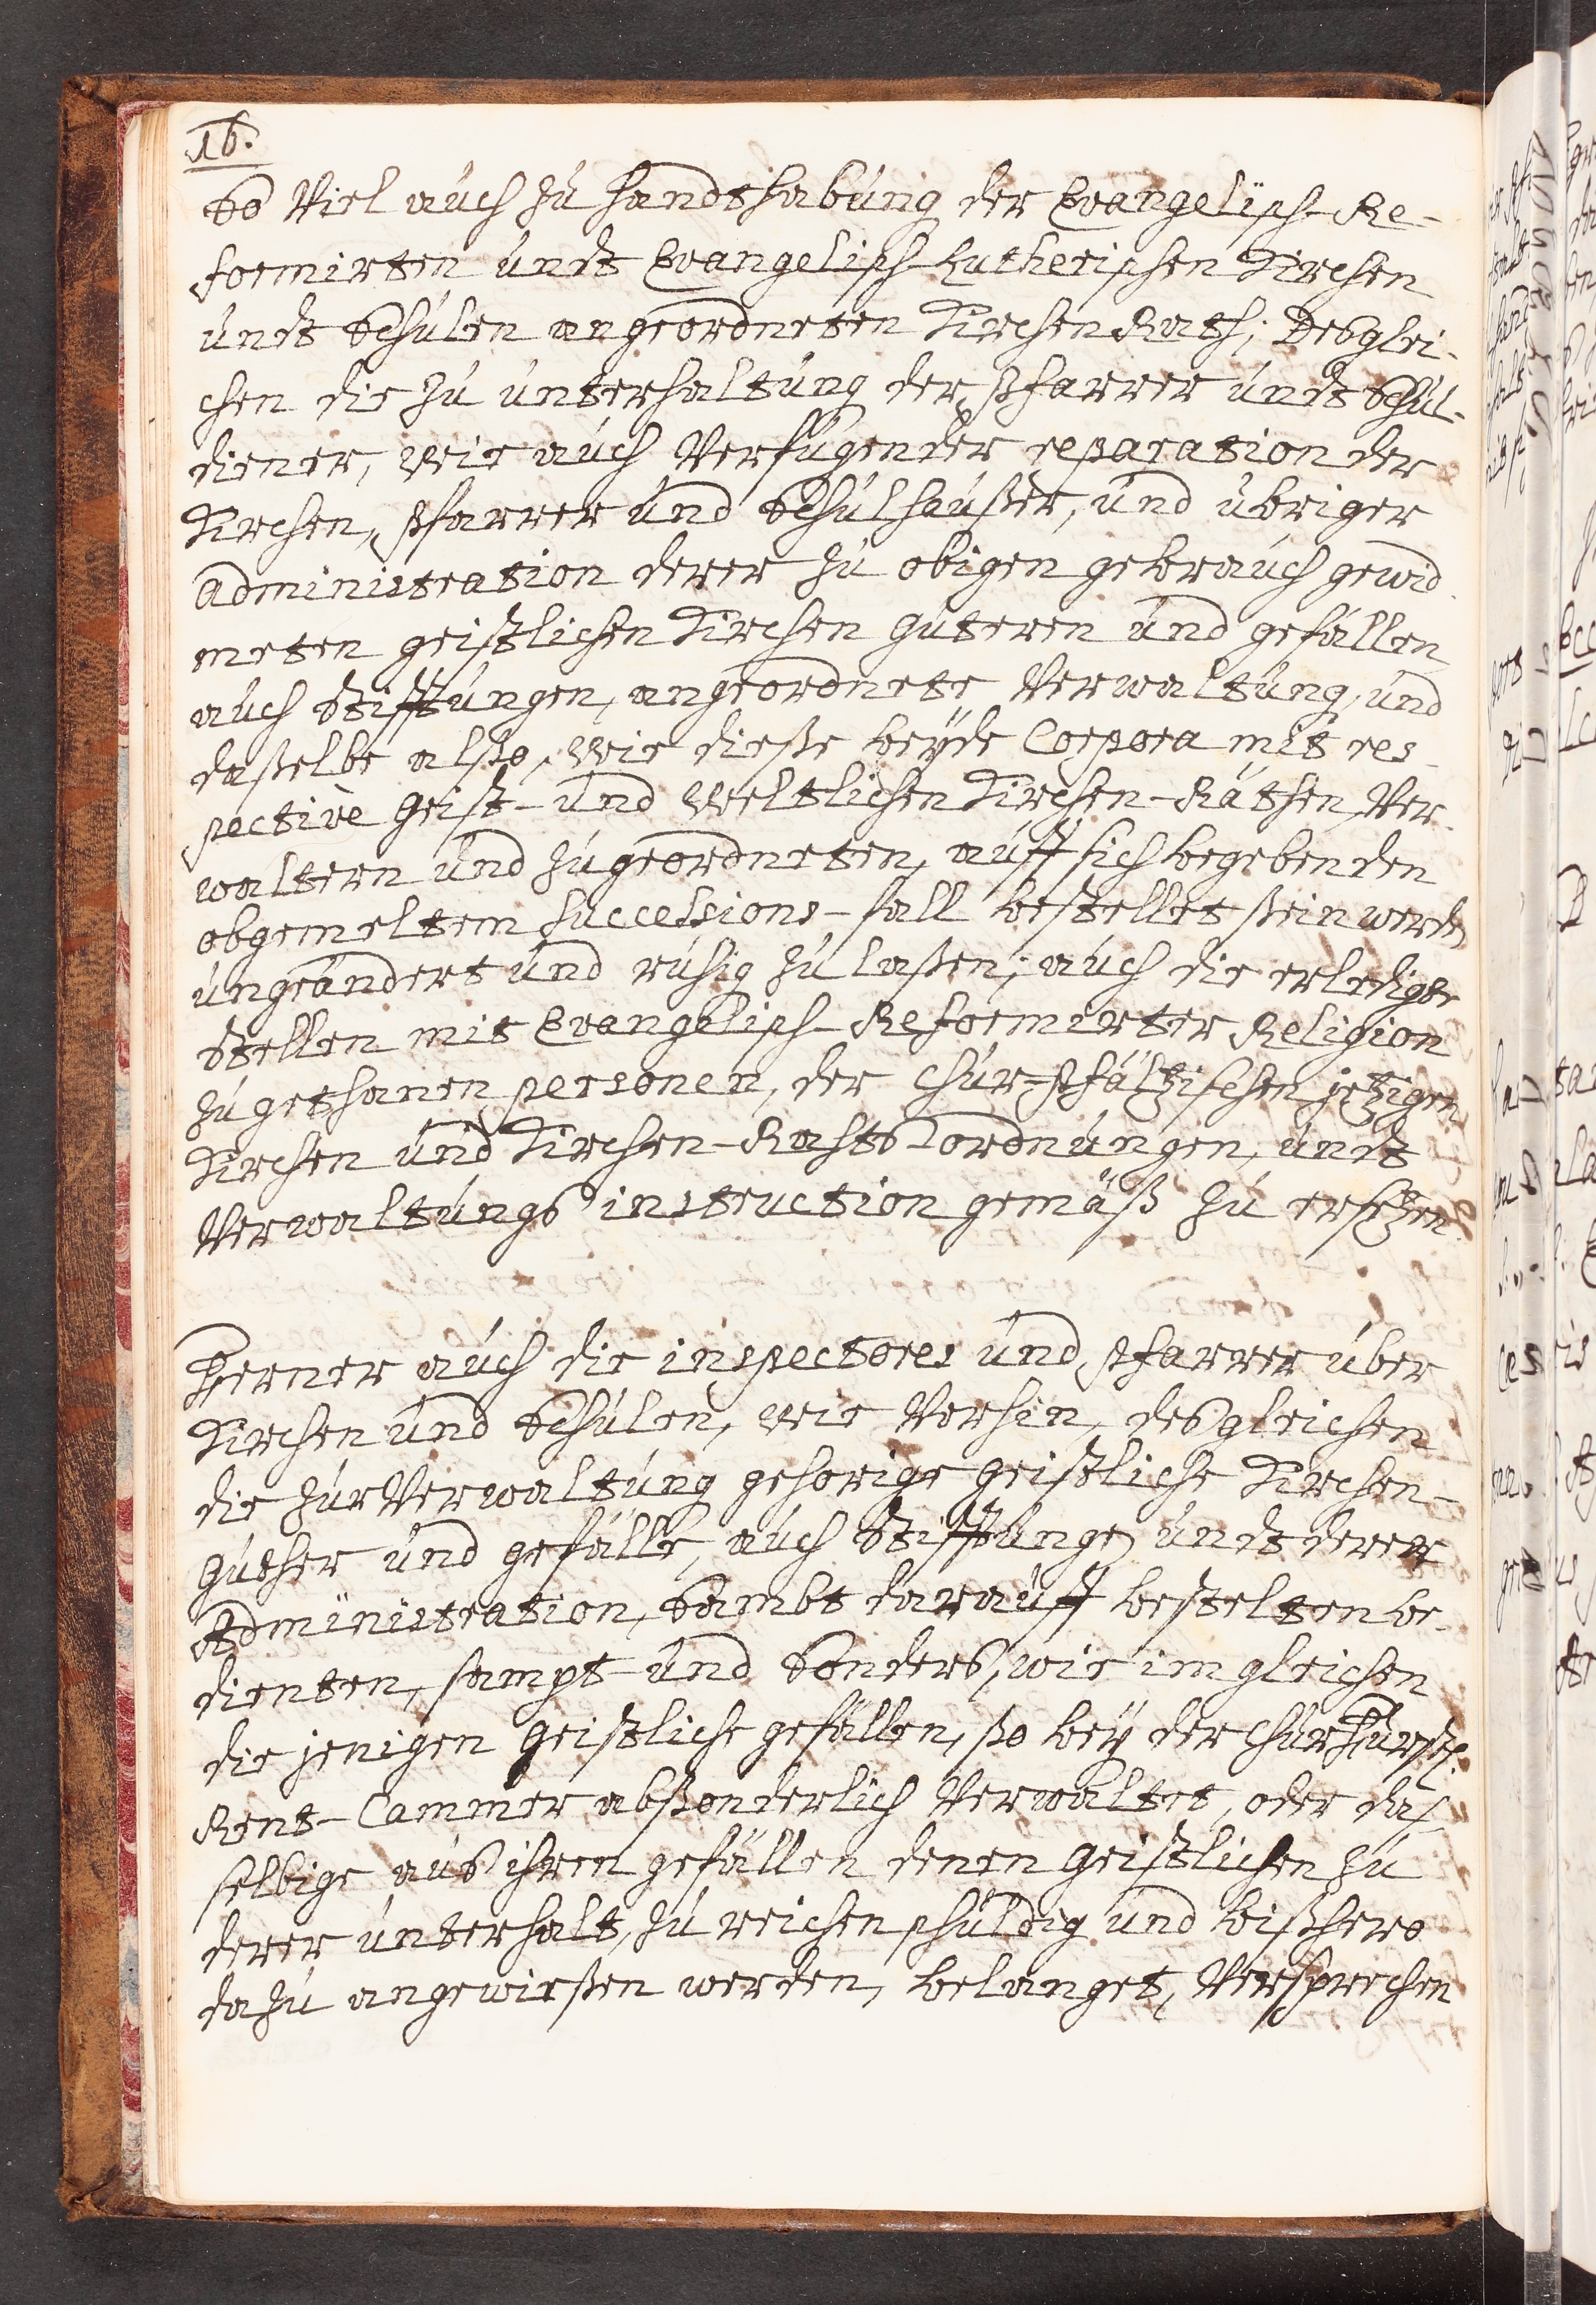 16.
So Viel auch zu handthabung der Evangelisch-Re-
formirten undt Evangelisch-Lutherischen Kirchen
undt Schulen angeordneten Kirchen Rath; Desglei-
chen die zu unterhaltung der Pfarrer undt Schul-
diener, wie auch Verfugender reparation der
Kirchen, Pfarrer und Schulhaußer, und ubriger
administration derer zu obigen gebrauch gewid-
meten geistlichen Kirchen guteren und gefällen
auch Stifftungen, angeordnete Verwaltung, und
daßelbe alßo, wie dieße beyde Corpora mit res-
pective Geist- und Weltlichen Kirchen-Räthen, Ver-
waltern und zugeordneten, auff sich begebenden
obgemeltem Successions-fall bestellet sein werden
ungeändert und ruhig zu laßen; auch die erledigte
Stellen mit Evangelisch-Reformirter Religion
zugethanen personen, der Chur-Pfältzischen jetzigen
Kirchen und Kirchen-Raths ordnungen, undt
Verwaltungs instruction gemäß zu ersetzen.
Ferner auch die inspectores und Pfarrer über
Kirchen und Schulen, wie Vorhin, desgleichen
die zur Verwaltung gehörige Geistliche Kirchen-
güther und gefälle, auch Stifftungen undt derer
Administration, Sambt darauff bestelten be-
dienten, sampt- und Sonders, wie im gleichen
die jenigen Geistliche gefällen, so bey der Churfürstl.
Rent-Cammer absonderlich Verwaltet, oder das
selbige aus ihren gefällen denen Geistlichen zu
derer unterhalt, zu reichen schuldig und bißhero
dazu angewießen werden, belanget, Versprechen